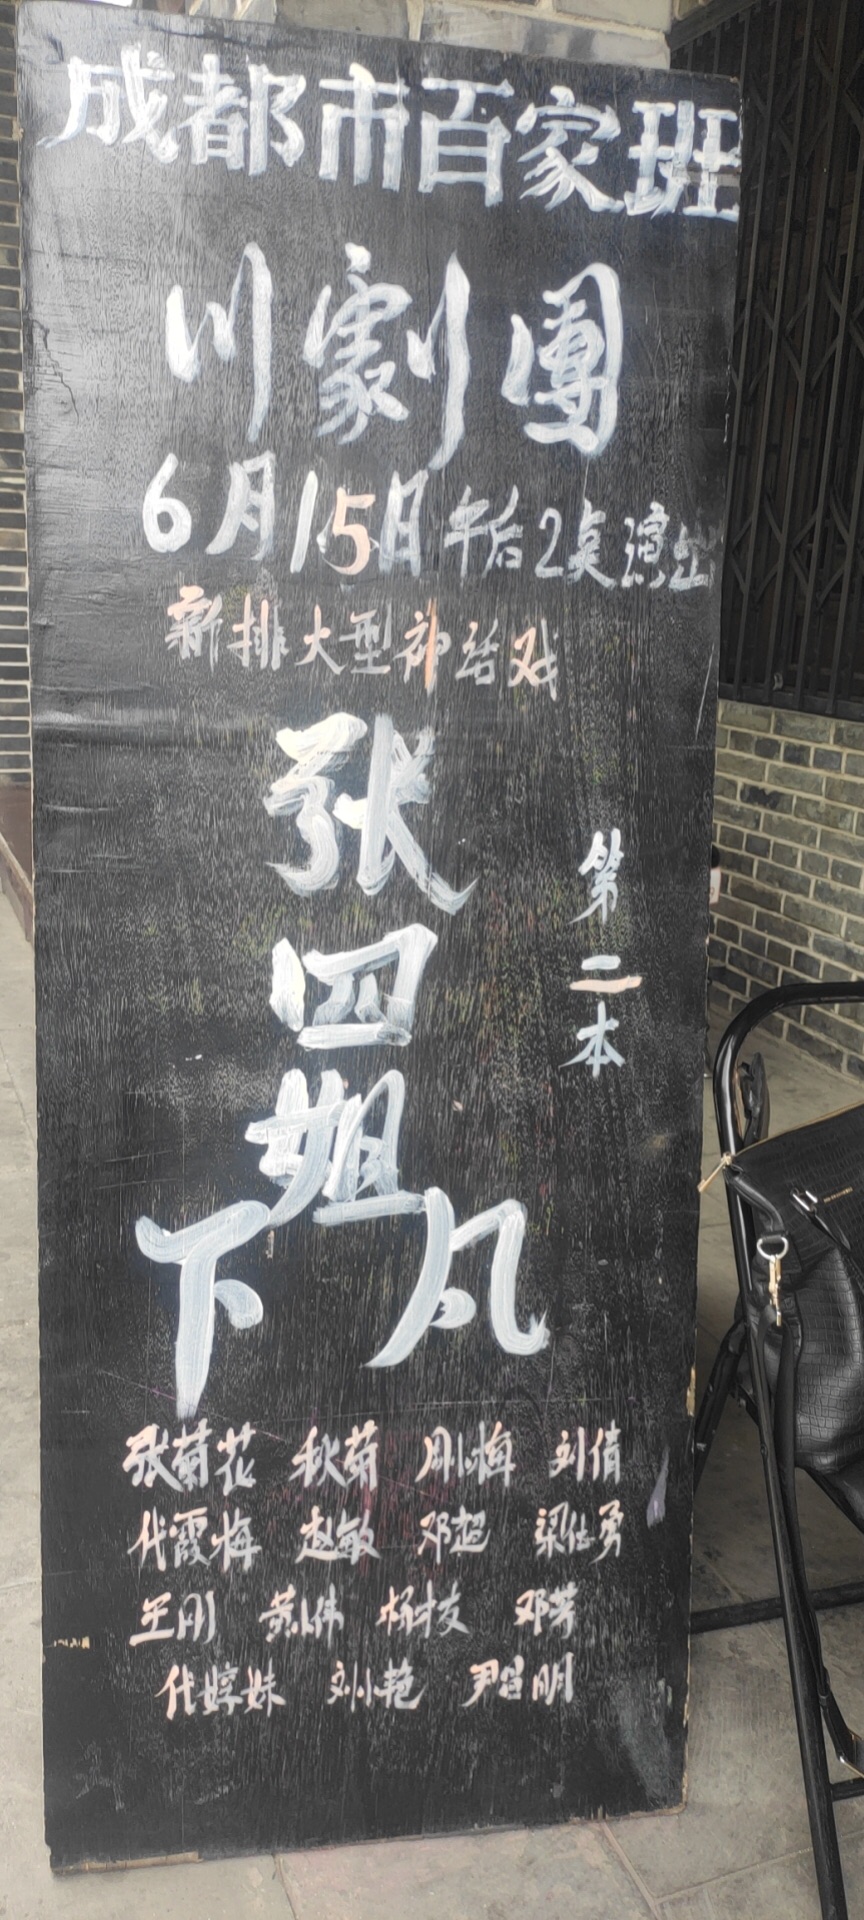 成都市百家班
川劇團
6月15日午后2桌演出
新排大型神话戏
张四姐下凡
第二本
张菊花 秋菊 刚梅 刘倩
代霞梅 赵敏 邓超 梁仕勇
王刚 黄小伟 杨才友 邓芳
代婷妹 刘小艳 尹昌明